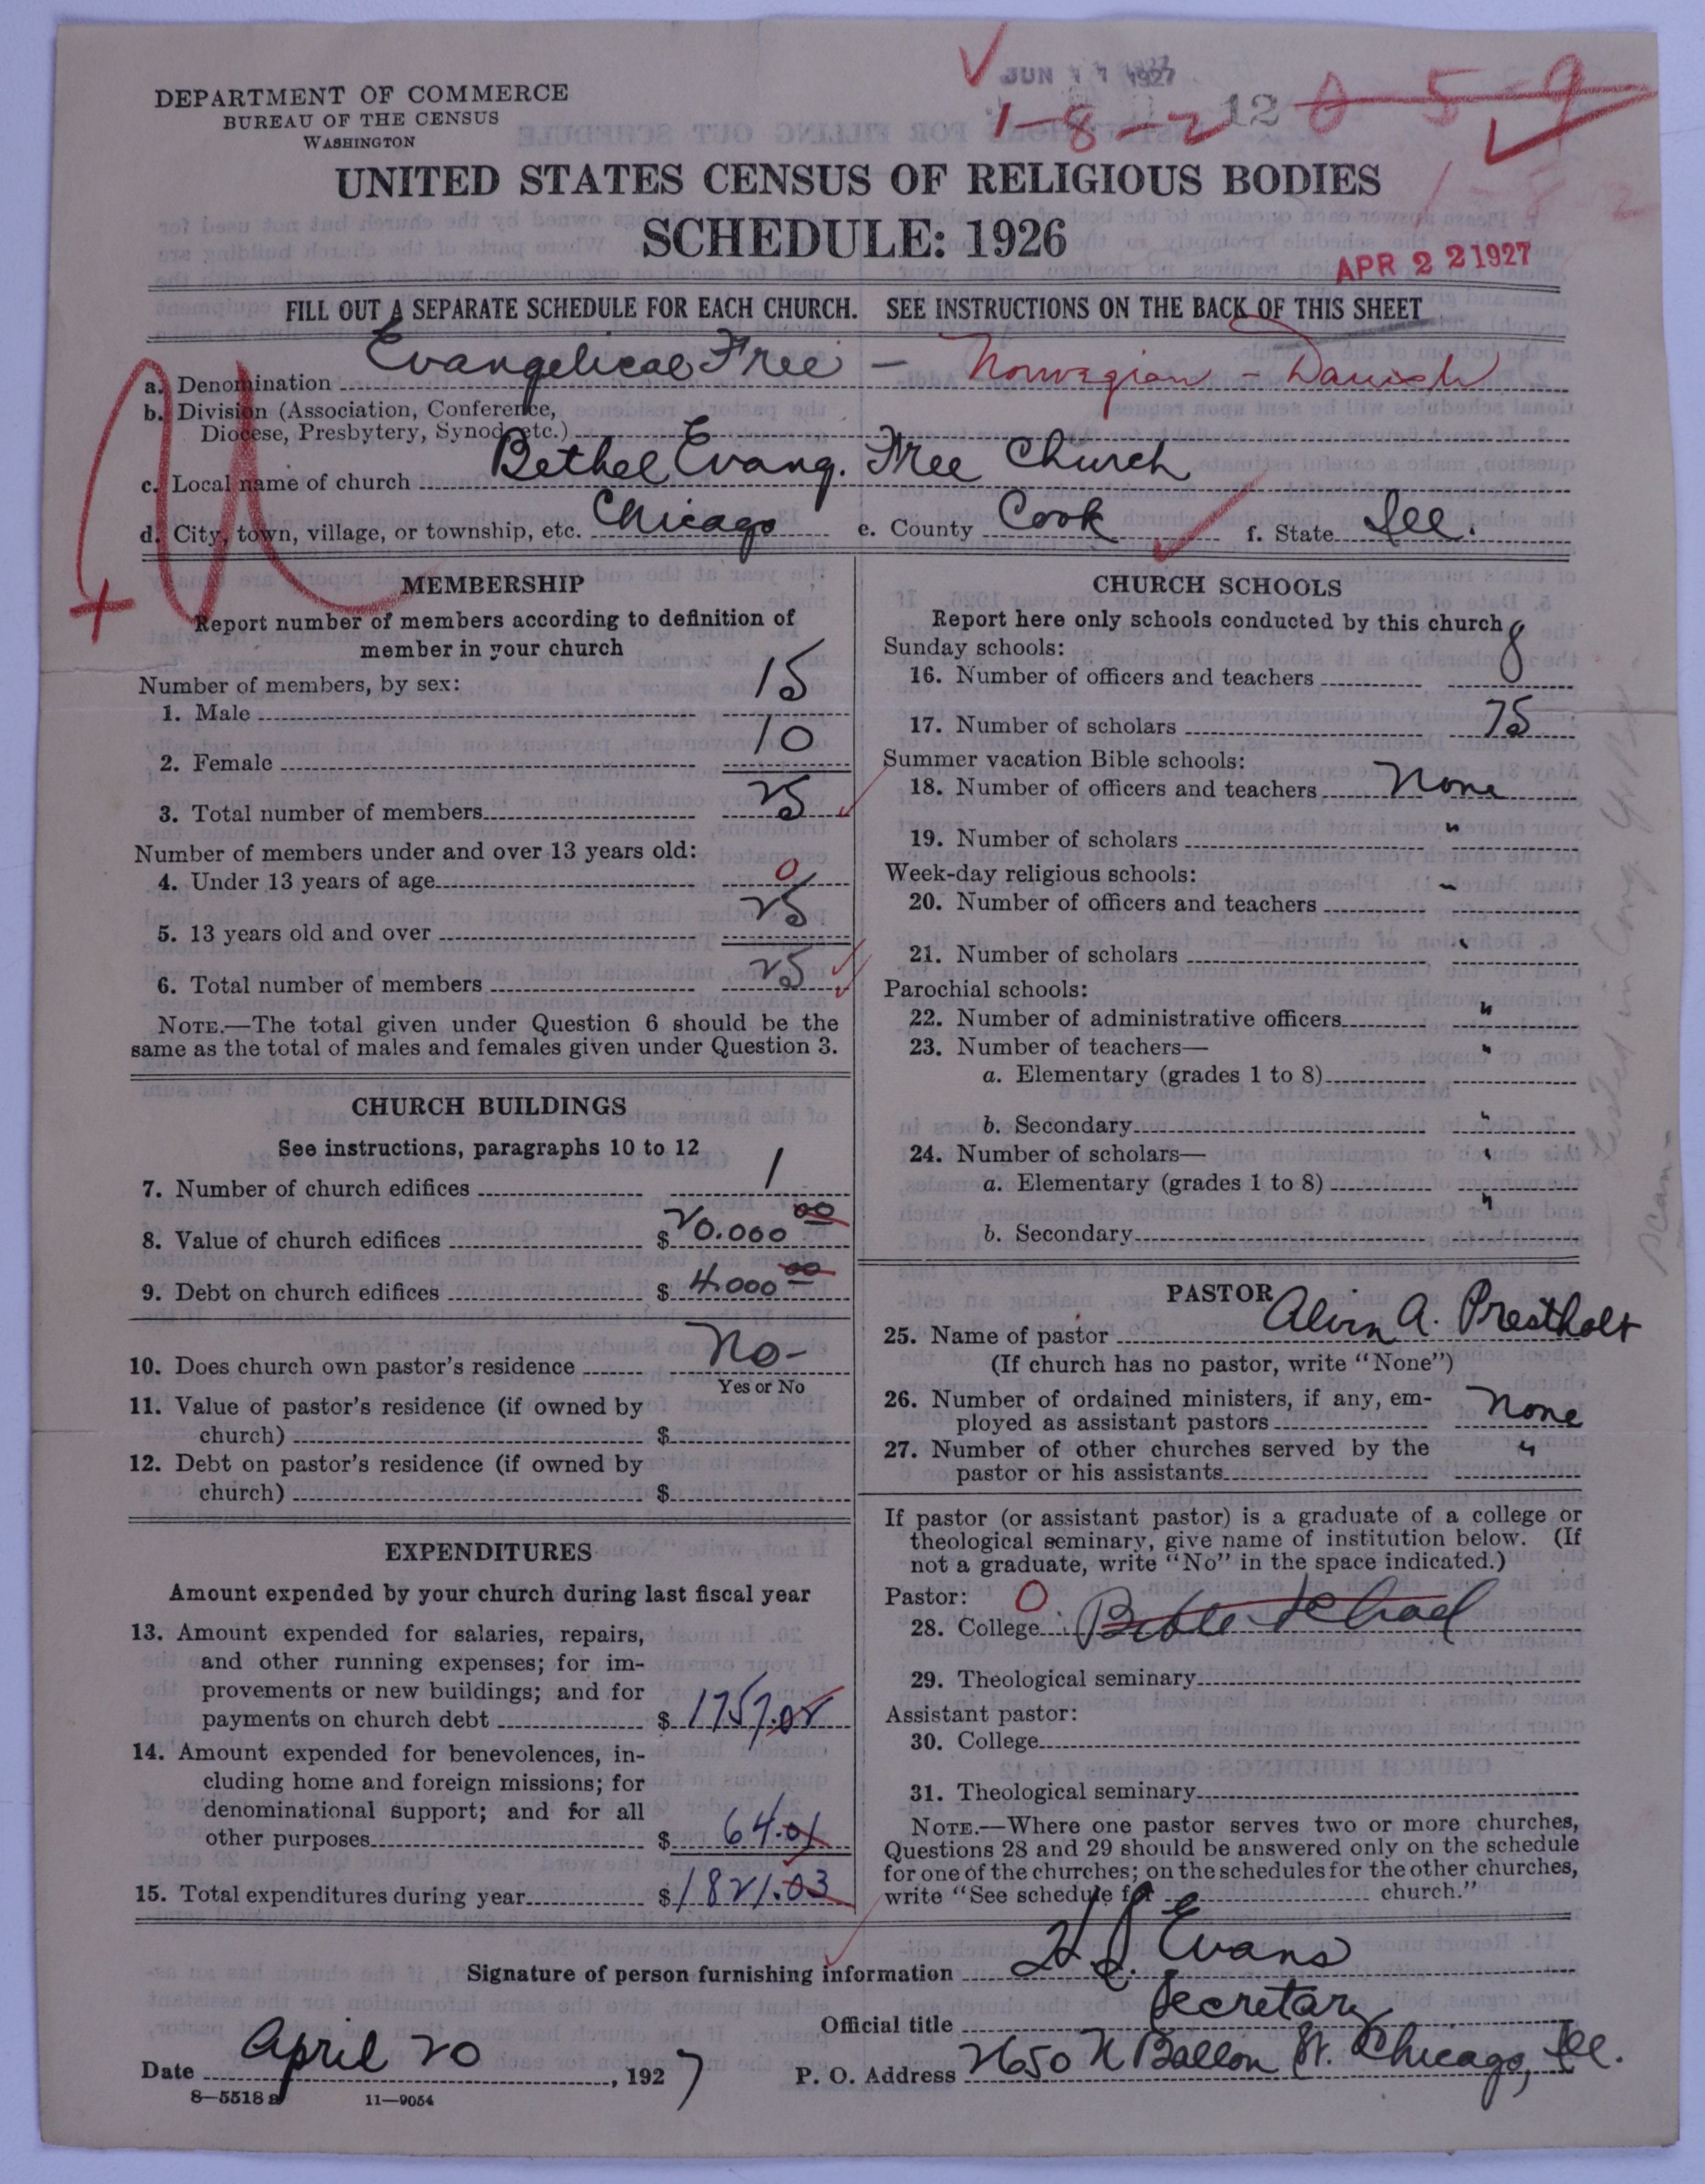 DEPARTMENT OF COMMERCE
BUREAU OF THE CENSUS
WASHINGTON
JUN 1927
1-8-2 12 0 5 9
1-8-2
UNITED STATES CENSUS OF RELIGIOUS BODIES
SCHEDULE: 1926
APR 22 1927
FILL OUT A SEPARATE SCHEDULE FOR EACH CHURCH. SEE INSTRUCTIONS ON THE BACK OF THIS SHEET
a. Denomination Evangelical Free - Norwegian - Danish
b. Division (Association, Conference,
Diocese, Presbytery, Synod, etc.)
c. Local name of church Bethel Evang. Free Church
d. City, town, village, or township, etc. Chicago e. County Cook f. State Ill.
MEMBERSHIP
Report number of members according to definition of
member in your church
Number of members, by sex:
1. Male 15
2. Female 10
3. Total number of members 25
Number of members under and over 13 years old:
4. Under 13 years of age 0
5. 13 years old and over 25
6. Total number of members 25
NOTE.—The total given under Question 6 should be the
same as the total of males and females given under Question 3.
CHURCH BUILDINGS
See instructions, paragraphs 10 to 12
7. Number of church edifices 1
8. Value of church edifices $ 20.000 00
9. Debt on church edifices $ 4.000 00
10. Does church own pastor's residence No-
Yes or No
11. Value of pastor's residence (if owned by
church) $
12. Debt on pastor's residence (if owned by
church) $
EXPENDITURES
Amount expended by your church during last fiscal year
13. Amount expended for salaries, repairs,
and other running expenses; for im-
provements or new buildings; and for
payments on church debt $ 1757.02
14. Amount expended for benevolences, in-
cluding home and foreign missions; for
denominational support; and for all
other purposes $ 64.01
15. Total expenditures during year $ 1821.03
CHURCH SCHOOLS
Report here only schools conducted by this church
Sunday schools:
16. Number of officers and teachers 8
17. Number of scholars 75
Summer vacation Bible schools:
18. Number of officers and teachers None
19. Number of scholars "
Week-day religious schools:
20. Number of officers and teachers "
21. Number of scholars "
Parochial schools:
22. Number of administrative officers "
23. Number of teachers— "
a. Elementary (grades 1 to 8)
b. Secondary "
24. Number of scholars— "
a. Elementary (grades 1 to 8) "
b. Secondary
PASTOR
25. Name of pastor Alvin A. Prestholt
(If church has no pastor, write "None")
26. Number of ordained ministers, if any, em-
ployed as assistant pastors None
27. Number of other churches served by the
pastor or his assistants "
If pastor (or assistant pastor) is a graduate of a college or
theological seminary, give name of institution below. (If
not a graduate, write "No" in the space indicated.)
Pastor: 0
28. College Bible School
29. Theological seminary
Assistant pastor:
30. College
31. Theological seminary
NOTE.—Where one pastor serves two or more churches,
Questions 28 and 29 should be answered only on the schedule
for one of the churches; on the schedules for the other churches,
write "See schedule for church."
Signature of person furnishing information Evans
Official title Secretary
Date April 20, 1927 P. O. Address 2650 N Ballou St. Chicago, Ill.
8—5518 a 11—9054